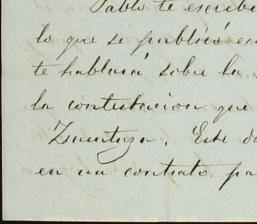 Pablo te escribi
lo que se publicó en
te hablará sobre la
la contestacion que
Este de
en un contrato pa